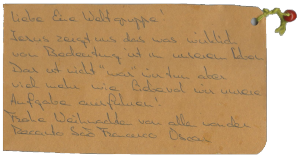 Liebe Eine Weltgruppe!
Jesus zeigt uns das was wirklich
von Bedeutung ist in unserem Leben.
Das ist nicht was wir tun aber
viel mehr wie liebevoll wir unsere
Aufgabe ausführen!
Frohe Weihnachten von alle von der
Recanto São Francisco Oscar